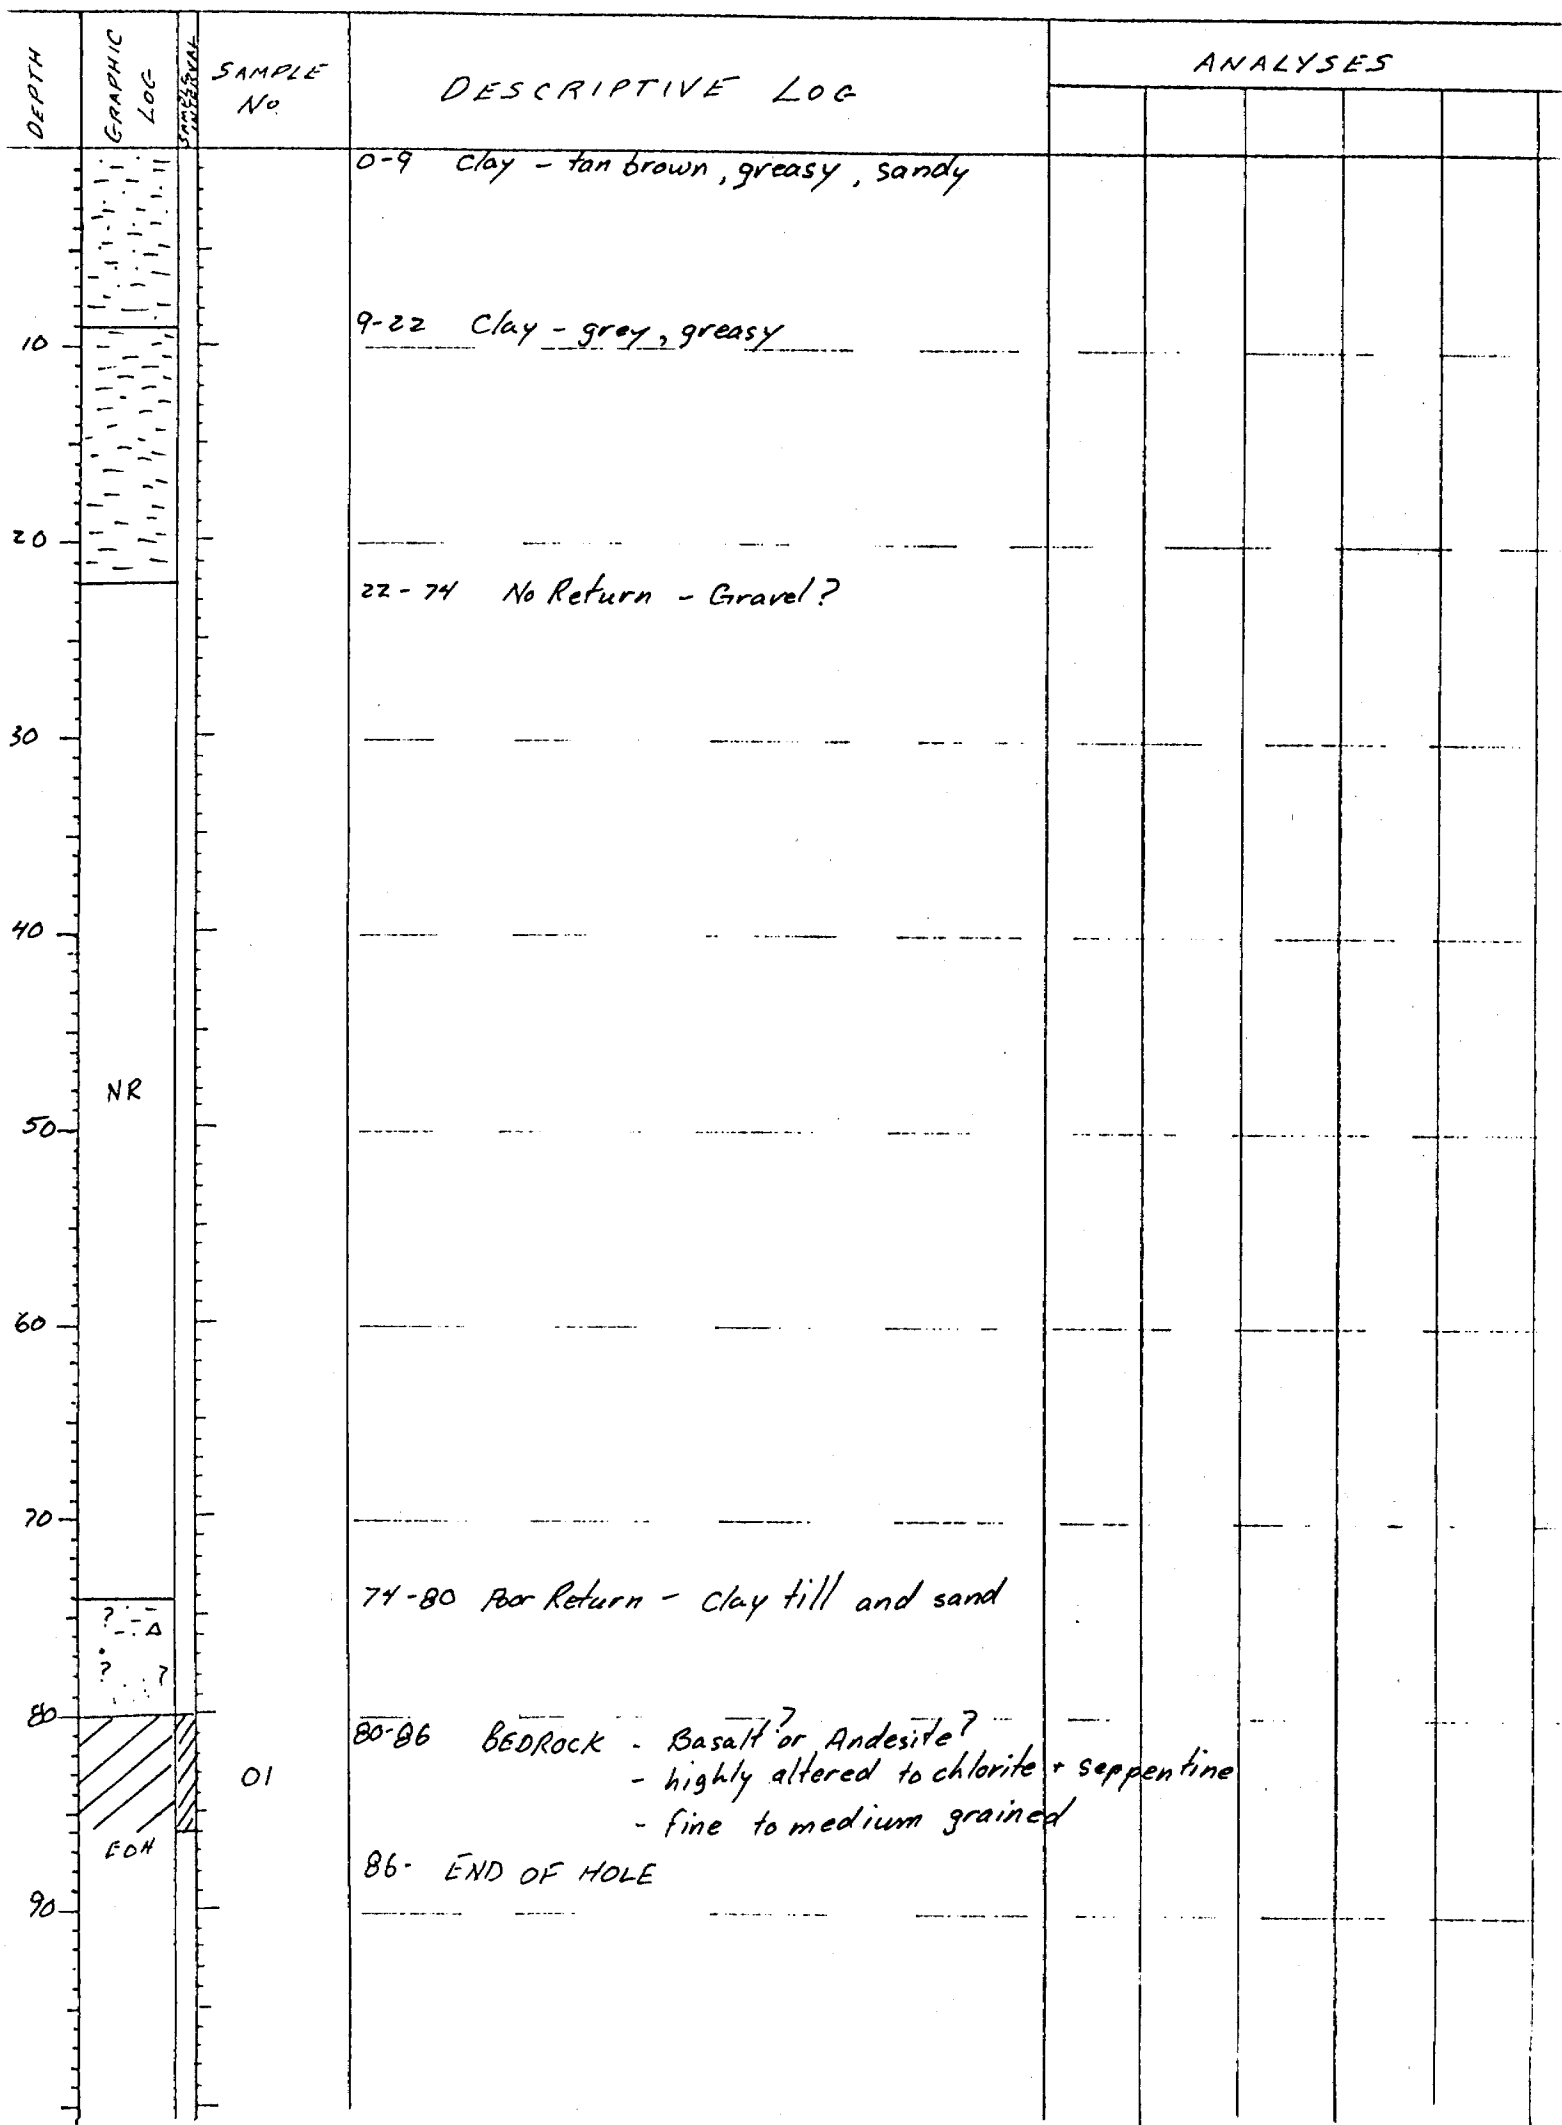 DEPTH
GRAPHIC LOG
SAMPLE INTERVAL
SAMPLE No.
DESCRIPTIVE LOG
ANALYSES
0-9 Clay - tan brown, greasy, sandy
9-22 Clay - grey, greasy
10
20
22-74 No Return - Gravel?
30
40
NR
50
60
70
74-80 Poor Return - Clay till and sand
? 
? ?
80
80-86 BEDROCK - Basalt? or Andesite?
01
- highly altered to chlorite + seppentine
- fine to medium grained
EOH
86- END OF HOLE
90